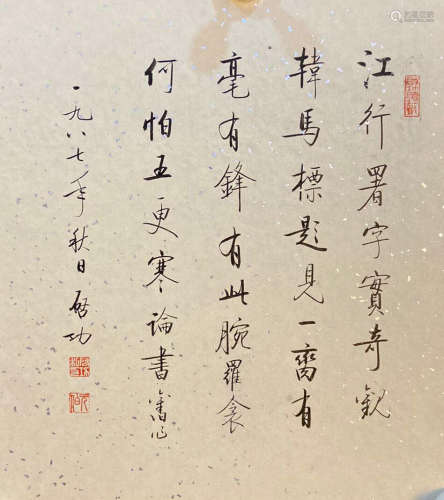 江行署字實奇觀
韓馬標題見一有
毫有鋒有此腕羅衾
何怕五更寒論書舊作
一九八七年秋日啓功